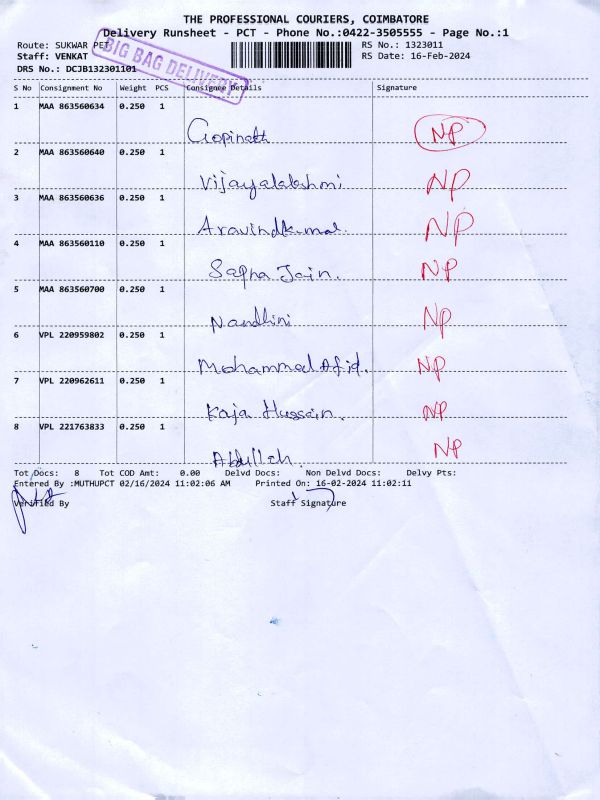 THE PROFESSIONAL COURIERS, COIMBATORE
Delivery Runsheet - PCT - Phone No.:0422-3505555 - Page No.:1
Route: SUKWAR PET
RS No.: 1323011
Staff: VENKAT
RS Date: 16-Feb-2024
DRS No.: DCJB132301101
BIG BAG DELIVERY
S No Consignment No Weight PCS Consignee Details Signature
1 MAA 863560634 0.250 1
Gopinath NP
2 MAA 863560640 0.250 1
Vijayalakshmi NP
3 MAA 863560636 0.250 1
Aravindkumar. NP
4 MAA 863560110 0.250 1
Sapna Jain. NP
5 MAA 863560700 0.250 1
Nandhini NP
6 VPL 220959802 0.250 1
Mohammed Afid. NP
7 VPL 220962611 0.250 1
Kaja Hussain. NP
8 VPL 221763833 0.250 1
Abdullah. NP
Tot Docs: 8 Tot COD Amt: 0.00 Delvd Docs: Non Delvd Docs: Delvy Pts:
Entered By :MUTHUPCT 02/16/2024 11:02:06 AM Printed On: 16-02-2024 11:02:11
Verified By Staff Signature